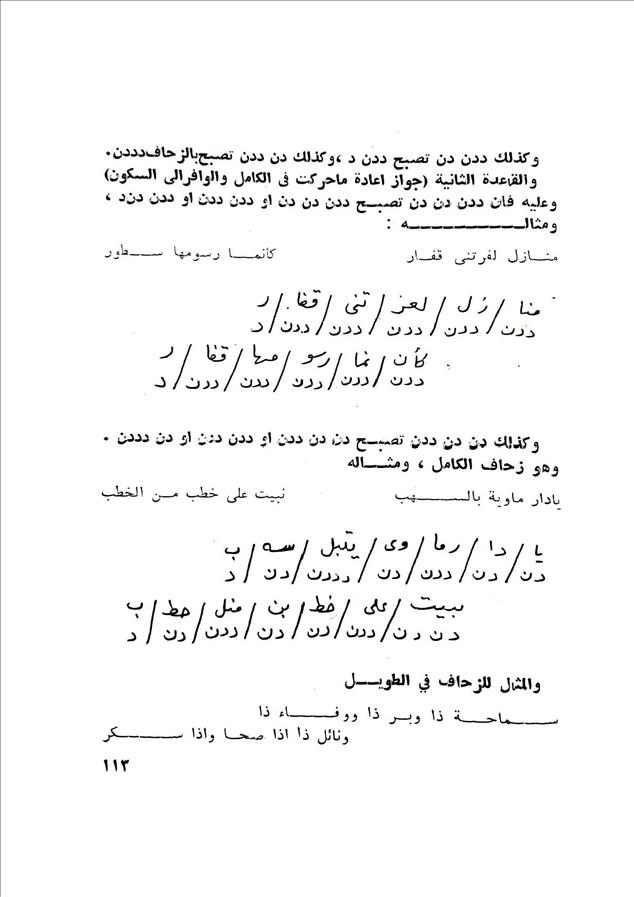 وكذلك ددن دن تصبح ددن د ،وكذلك دن ددن تصبح بالزحاف دددن.
والقاعدة الثانية (جواز اعادة ماحركت فى الكامل والوافر الى السكون)
وعليه فان ددن دن دن تصبح ددن دن دن او ددن ددن او ددن دن د ،
ومثاله :
منازل لفرتنى قفار كانما رسومها سطور
منا / زل / لعز / تنى / قفا / ر
ددن / ددن / ددن / ددن / ددن / د
كأن / نما / رسو / مها / قفا / ر
ددن / ددن / ددن / ددن / ددن / د
وكذلك دن دن ددن تصبح دن دن ددن او ددن ددن او دن دددن .
وهو زحاف الكامل ، ومثاله
يادار ماوية بالسهب نبيت على خطب من الخطب
يا / دا / رما / وى / يتبل / سه / ب
دن / دن / ددن / دن / دددن / دن / د
نبيت / على / خط / بن / منل / خط / ب
دن دن / ددن / دن / دن / ددن / دن / د
والمثال للزحاف في الطويل
سماحة ذا وبر ذا ووفاء ذا
ونائل ذا اذا صحا واذا سكر
١١٣